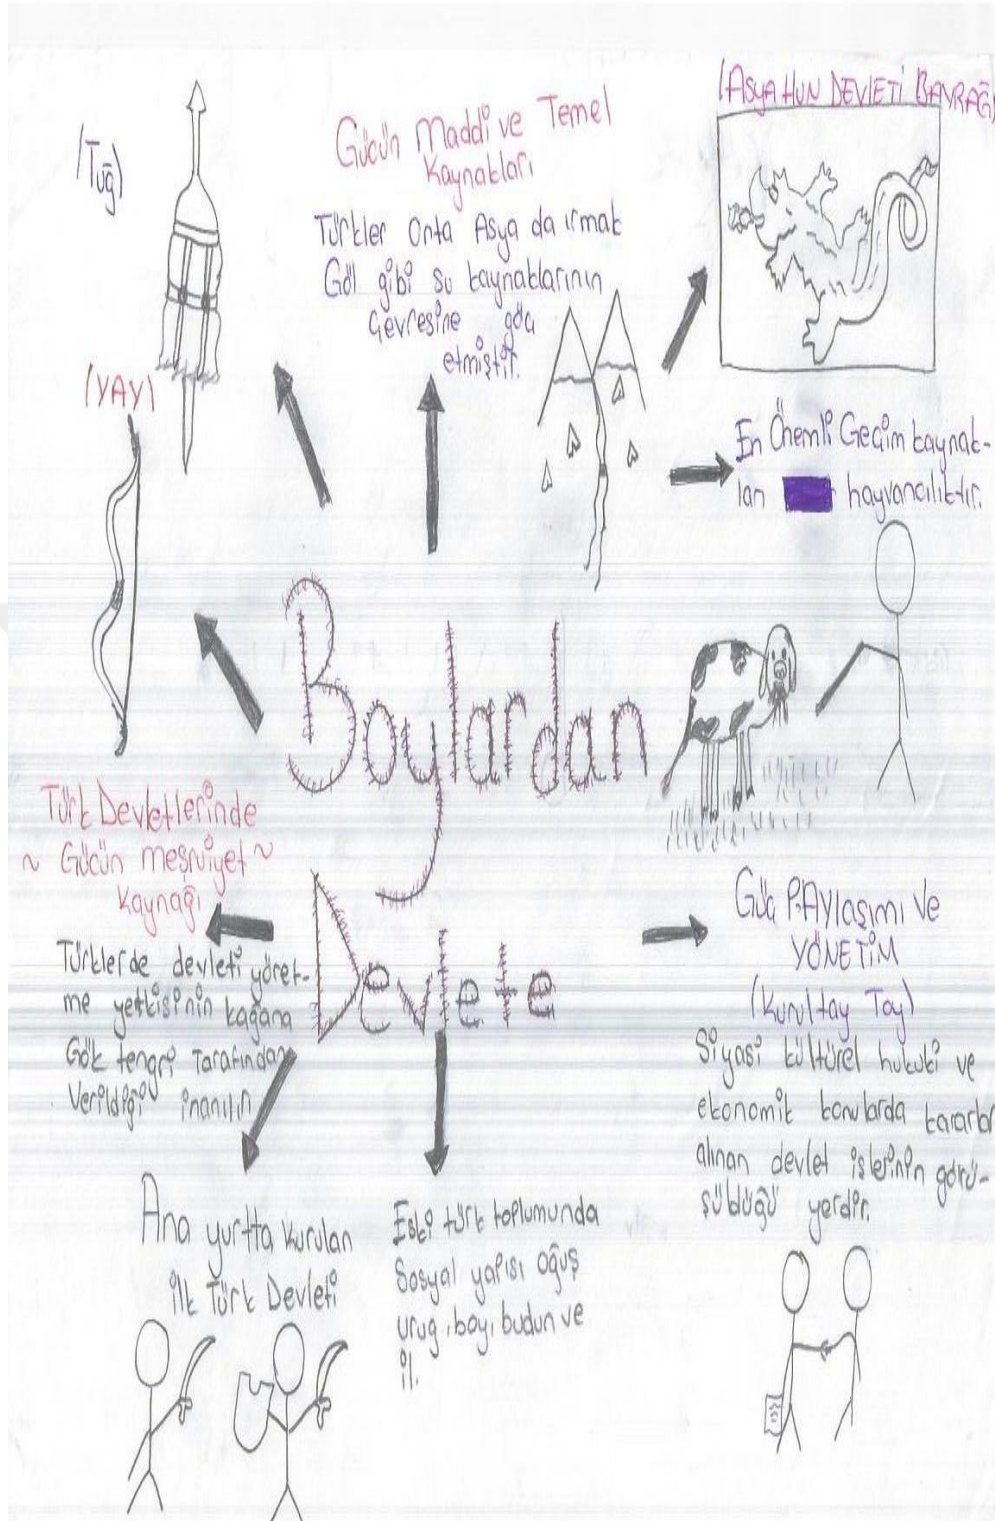 (Tuğ)
Gücün Maddi ve Temel
Kaynakları
Türkler Orta Asya da ırmak
Göl gibi su kaynaklarının
çevresine göç
etmiştir.
(ASYA HUN DEVLETİ BAYRAĞI)
(YAY)
En Önemli Geçim kaynak-
ları hayvancılıktır.
Boylardan
Devlete
Türk Devletlerinde
~ Gücün meşruiyet ~
Kaynağı
Türklerde devleti yönet-
me yetkisinin kağana
Gök tengri Tarafından
Verildiği inanılır
Güç PAYLAŞIMI Ve
YÖNETİM
(Kurultay Toy)
Siyasi kültürel hukuki ve
ekonomik konularda kararlar
alınan devlet işlerinin görü-
şüldüğü yerdir.
Ana yurtta kurulan
ilk Türk Devleti
Eski türk toplumunda
Sosyal yapısı oğuş
urug, boy, budun ve
il.